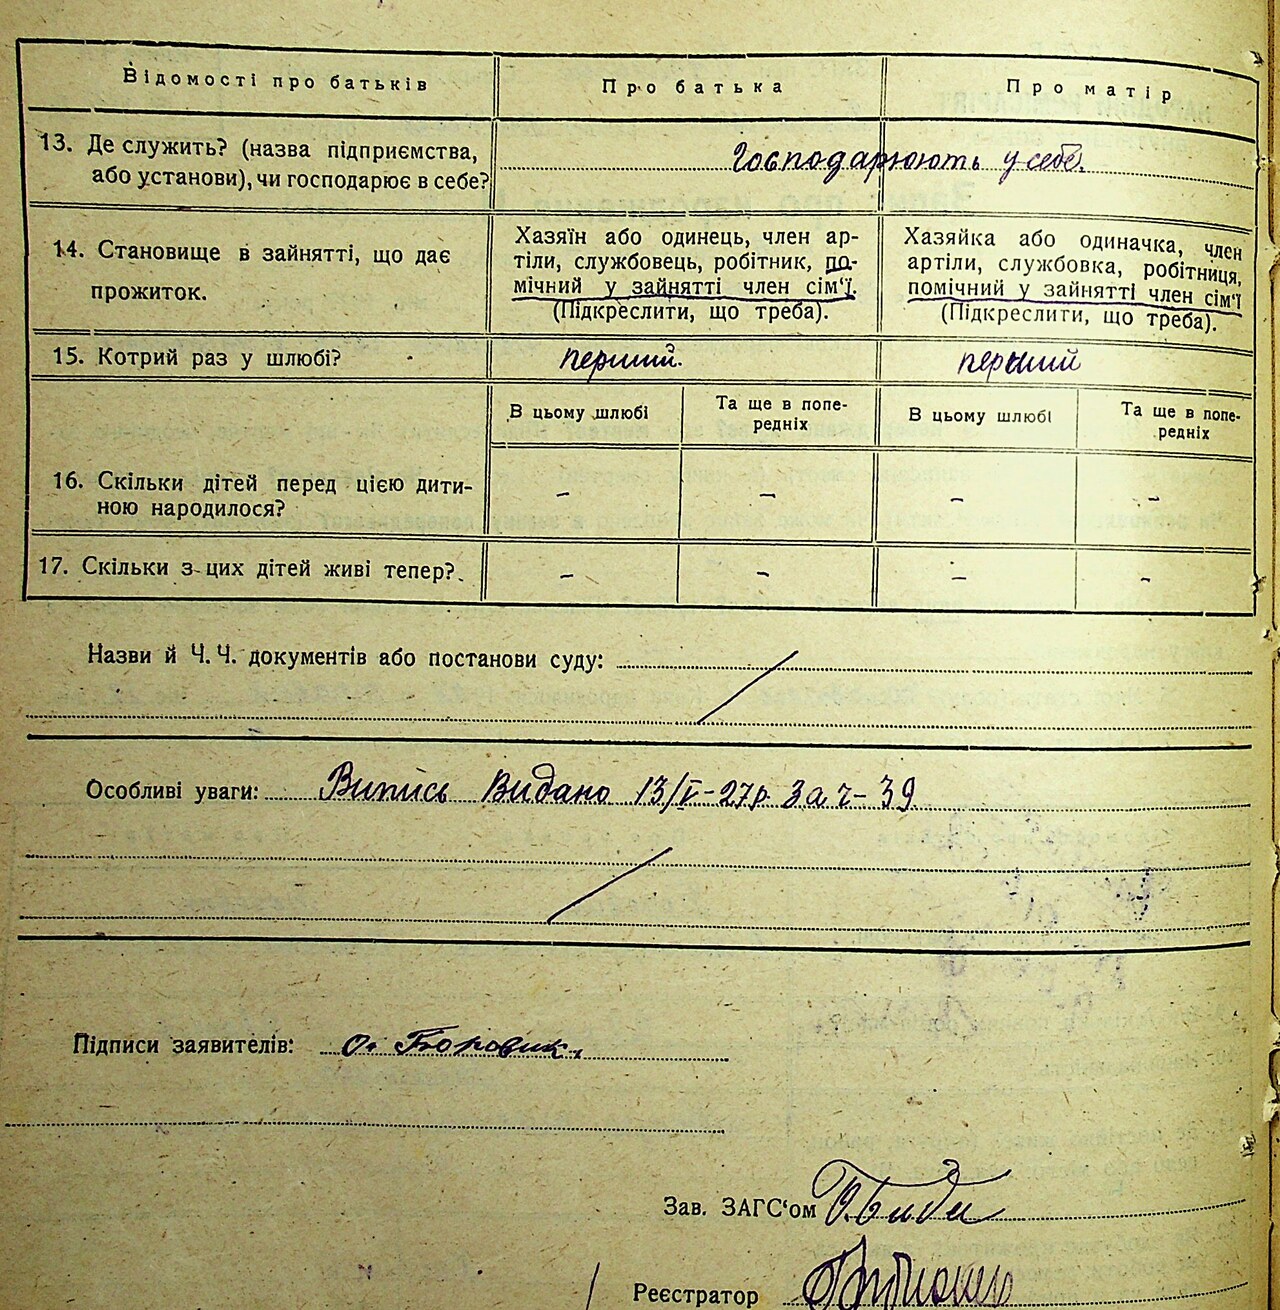 Відомості про батьків Про батька Про матір
13. Де служить? (назва підприємства, або установи), чи господарює в себе? Господарюють у себе.
14. Становище в зайнятті, що дає прожиток.
Хазяїн або одинець, член ар-
тіли, службовець, робітник, по-
мічний у зайнятті член сім'ї.
(Підкреслити, що треба).
Хазяйка або одиначка, член
артіли, службовка, робітниця,
помічний у зайнятті член сім'ї
(Підкреслити, що треба).
15. Котрий раз у шлюбі? перший. перший
В цьому шлюбі Та ще в попе-
редніх В цьому шлюбі Та ще в попе-
редніх
16. Скільки дітей перед цією дити-
ною народилося? – – – –
17. Скільки з цих дітей живі тепер? – – – –
Назви й Ч. Ч. документів або постанови суду:
Особливі уваги: Випись видано 13/V-27р за ч-39
Підписи заявителів: О. Боровик.
Зав. ЗАГС'ом
Реєстратор